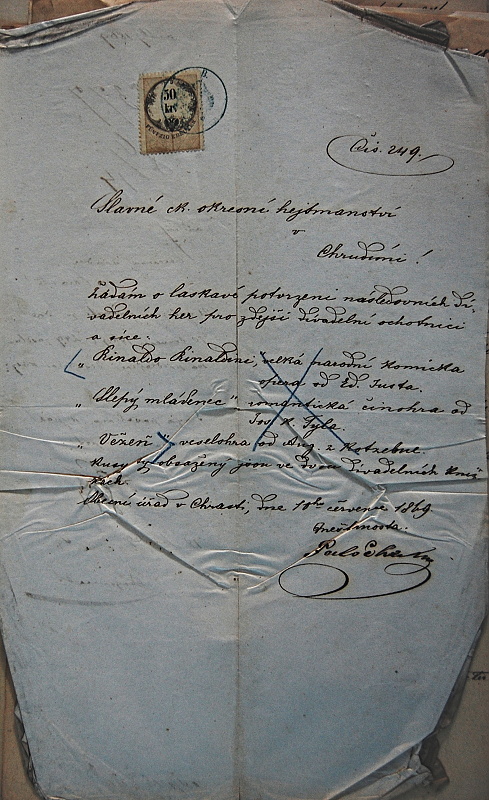 50
kr
Čís. 249.
Slavné ck. okresní hejtmanství
v
Chrudimi!
Žádám o laskavé potvrzení následovních di-
vadelních her pro zdejší divadelní ochotníci
a sice:
„Rinaldo Rinaldini, velká národní komická
opera od Ed. Justa.
„Slepý mládenec" romantická činohra od
Jos. K. Tyla.
„Vězeň" veselohra od Aug. z Kotzebue.
Kusy obsaženy jsou ve dvou divadelních kni-
Obecní úřad v Chrasti, dne 10ho července 1869